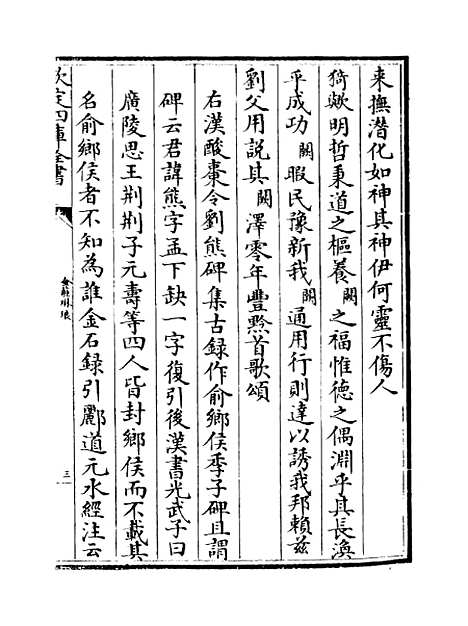 来撫潛化如神其神伊何靈不傷人
猗歟明哲秉道之樞養闕之福惟德之偶淵乎其長渙
乎成功闕暇民豫新我闕通用行則達以誘我邦賴兹
劉父用說其闕澤零年豐黔首歌頌
右漢酸棗令劉熊碑集古録作俞鄉侯季子碑且謂
碑云君諱熊字孟下缺一字復引後漢書光武子曰
廣陵思王荆荆子元壽等四人皆封鄉侯而不載其
名俞鄉侯者不知為誰金石録引酈道元水經注云
欽定四庫全書
金薤琳琅
三